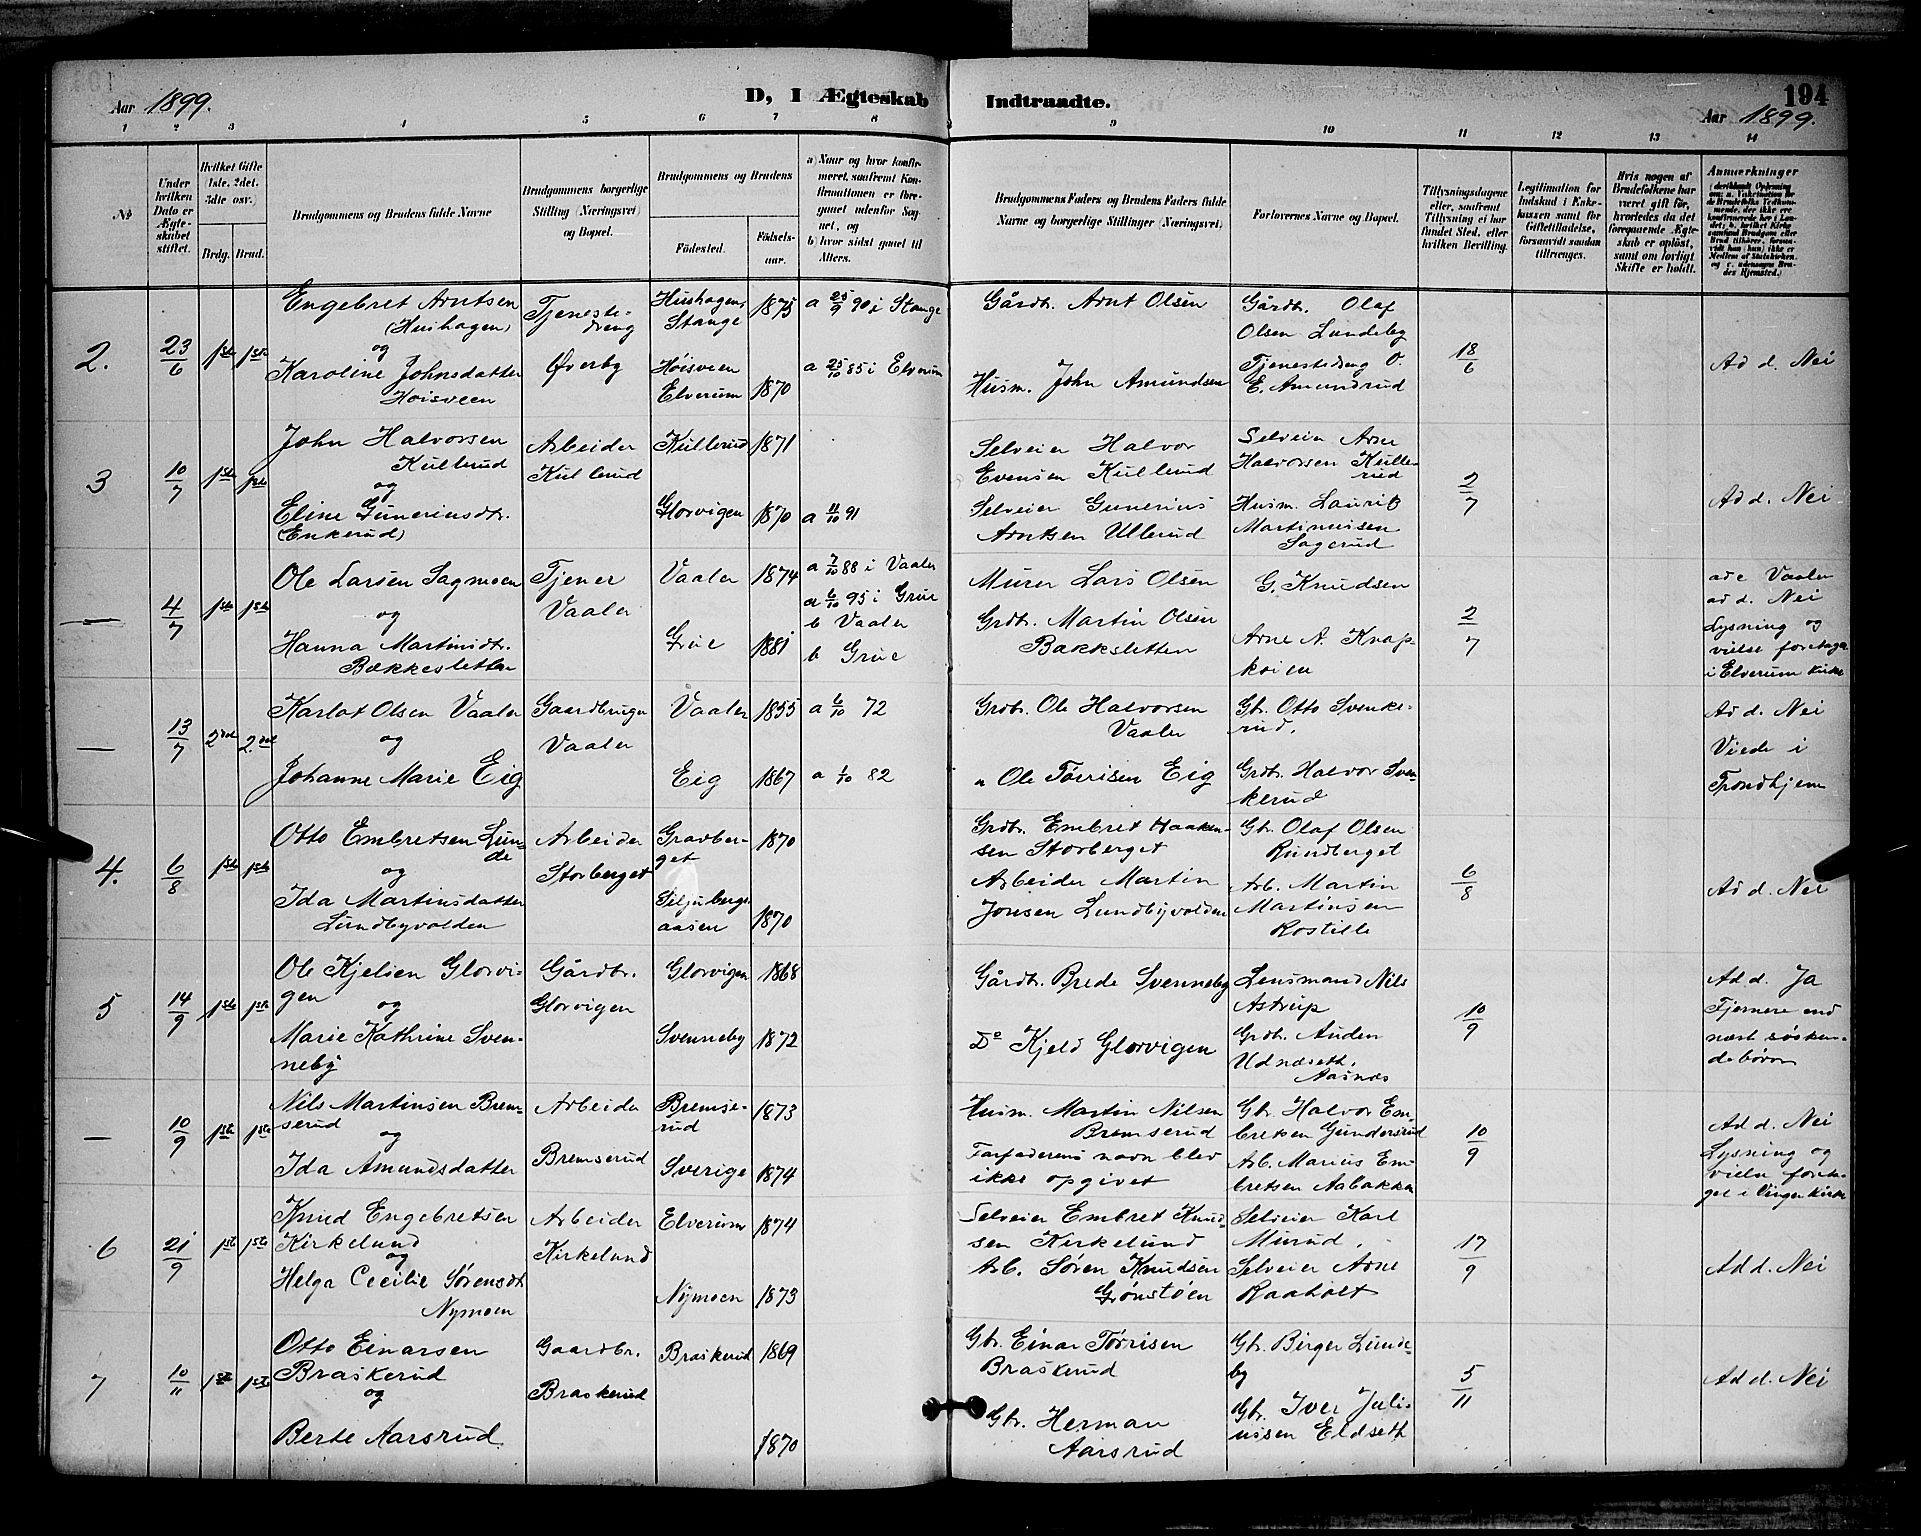 194
Aar 1899.
D, I Ægteskab Indtraadte.
Aar 1899.
1 2 3 4 5 6 7 8 9 10 11 12 13 14
No
Under hvilken Dato er Ægteskabet stiftet.
Hvilket Gifte (1ste, 2det, 3die osv.)
Brdg. Brud.
Brudgommens og Brudens fulde Navne
Brudgommens borgerlige Stilling (Næringsvei) og Bopæl.
Brudgommens og Brudens
Födested.
Födselsaar.
a) Naar og hvor konfirmeret, saafremt Konfirmationen er foregaaet udenfor Sognet, og
b) hvor sidst gaaet til Alters.
Brudgommens Faders og Brudens Faders fulde Navne og borgerlige Stillinger (Næringsvei)
Forlovernes Navne og Bopæl.
Tillysningsdagene eller, saafremt Tillysning ei har fundet Sted, efter hvilken Bevilling.
Legitimation for Indskud i Enkekassen samt for Giftetilladelse, forsaavidt saadan tiltrænges.
Hvis nogen af Brudefolkene har været gift før, hvorledes da det foregaaende Ægteskab er opløst, samt om lovligt Skifte er holdt.
Anmærkninger
2. 23/6 1ste 1ste
Engebret Arntsen
(Hushagen)
og
Karoline Johnsdatter
Hoisveen
Tjeneste-
dreng
Øverby
Hushagen
Stange
1875
a 25/9 90 i Stange
Høisveen
Elverum
1870
a 25/10 85 i Elverum
Gårdbr. Arnt Olsen
Husm. John Amundsen
Gårdbr. Olaf
Olsen Lundeby
Tjenestedreng O.
E. Amundrud
18/6
Ad d. Nei
3 10/7 1ste 1ste
John Halvorsen
Kullerud
og
Eline Guneriusdtr.
(Enkerud)
Arbeider
Kullerud
Kullerud 1871
Glorvigen 1870
a 11/10 91
Selveier Halvor
Evensen Kullerud
Selveier Gunerius
Arntsen Ullerud
Selveier Arne
Halvorsen Kulle-
rud
Husm. Laurits
Martinusen
Sagerud
2/7
Ad d. Nei
— 4/7 1ste 1ste
Ole Larsen Sagmoen
og
Hanna Martinidtr.
Bækkesletten
Tjener
Vaaler
Vaaler 1874
a 7/10 88 i Vaaler
a 6/10 95 i Grue
b Vaaler
Grue 1881
b Grue
Murer Lars Olsen
Grdbr. Martin Olsen
Bakksletten
G. Knudsen
Arne A. Knap-
koien
2/7
ad c Vaaler
ad d. Nei
Lysning og
vielse foretaget
i Elverum kirke
— 13/7 2det 2det
Karlot Olsen Vaaler
og
Johanne Marie Eig
Gaardbruger
Vaaler
Vaaler 1855
a 6/10 72
Eig 1867
a 1/10 82
Grdbr. Ole Halvorsen
Vaaler
" Ole Tørrisen Eig
Gbr. Otto Svenke-
rud.
Grdbr. Halvor Sven-
kerud
Ad d. Nei
Viede i
Trondhjem
4. 6/8 1ste 1ste
Otto Embretsen Lun-
de
og
Ida Martinsdatter
Lundbyvolden
Arbeider
Storberget
Gravber-
get
1870
Siljuberg-
aasen
1870
Grdbr. Embret Haaken-
sen Storberget
Arbeider Martin
Jonsen Lundbyvolden
Gbr. Olaf Olsen
Rundberget
Arb. Martin
Martinsen
Rostille
6/8
Ad d. Nei
5 14/9 1ste 1ste
Ole Kjelsen Glorvi-
gen
og
Marie Kathrine Sven-
neby
Gårdbr.
Glorvigen
Glorvigen 1868
Svenneby 1872
Gårdbr. Brede Svenneby
Do Kjeld Glorvigen
Lensmand Nils
Astrup
Grdbr. Auden
Udnæseth,
Aasnæs
10/9
Ad d. Ja
Fjernere end
næst søsken-
debørn
— 10/9 1ste 1ste
Nils Martinsen Brem-
serud
og
Ida Amundsdatter
Arbeider
Bremserud
Bremse-
rud
1873
Sverige 1874
Husm. Martin Nilsen
Bremserud
Farfaderens navn blev
ikke opgivet
Gbr. Halvor Em-
bretsen Gundersrud
Arb. Marius Em-
bretsen Aabakken
10/9
Ad d. Nei
Lysning og
vielse foreta-
get i Vinger kirke
6 21/9 1ste 1ste
Knud Engebretsen
Kirkelund
og
Helga Cecilie Sørensdtr.
Nymoen
Arbeider
Kirkelund
Elverum 1874
Nymoen 1873
Selveier Embret Knud-
sen Kirkelund
Arb. Søren Knudsen
Grønstøen
Selveier Karl
Murud.
Selveier Arne
Raaholt
17/9
Ad d. Nei
7 10/11 1ste 1ste
Otto Einarsen
Braskerud
og
Berte Aarsrud
Gaardbr.
Braskerud
Braskerud 1869
1870
Gbr. Einar Tørrisen
Braskerud
Gbr. Herman
Aarsrud
Gbr. Birger Lunde-
by
Gbr. Iver Juli-
ussen Eldseth
5/11
Ad d. Nei